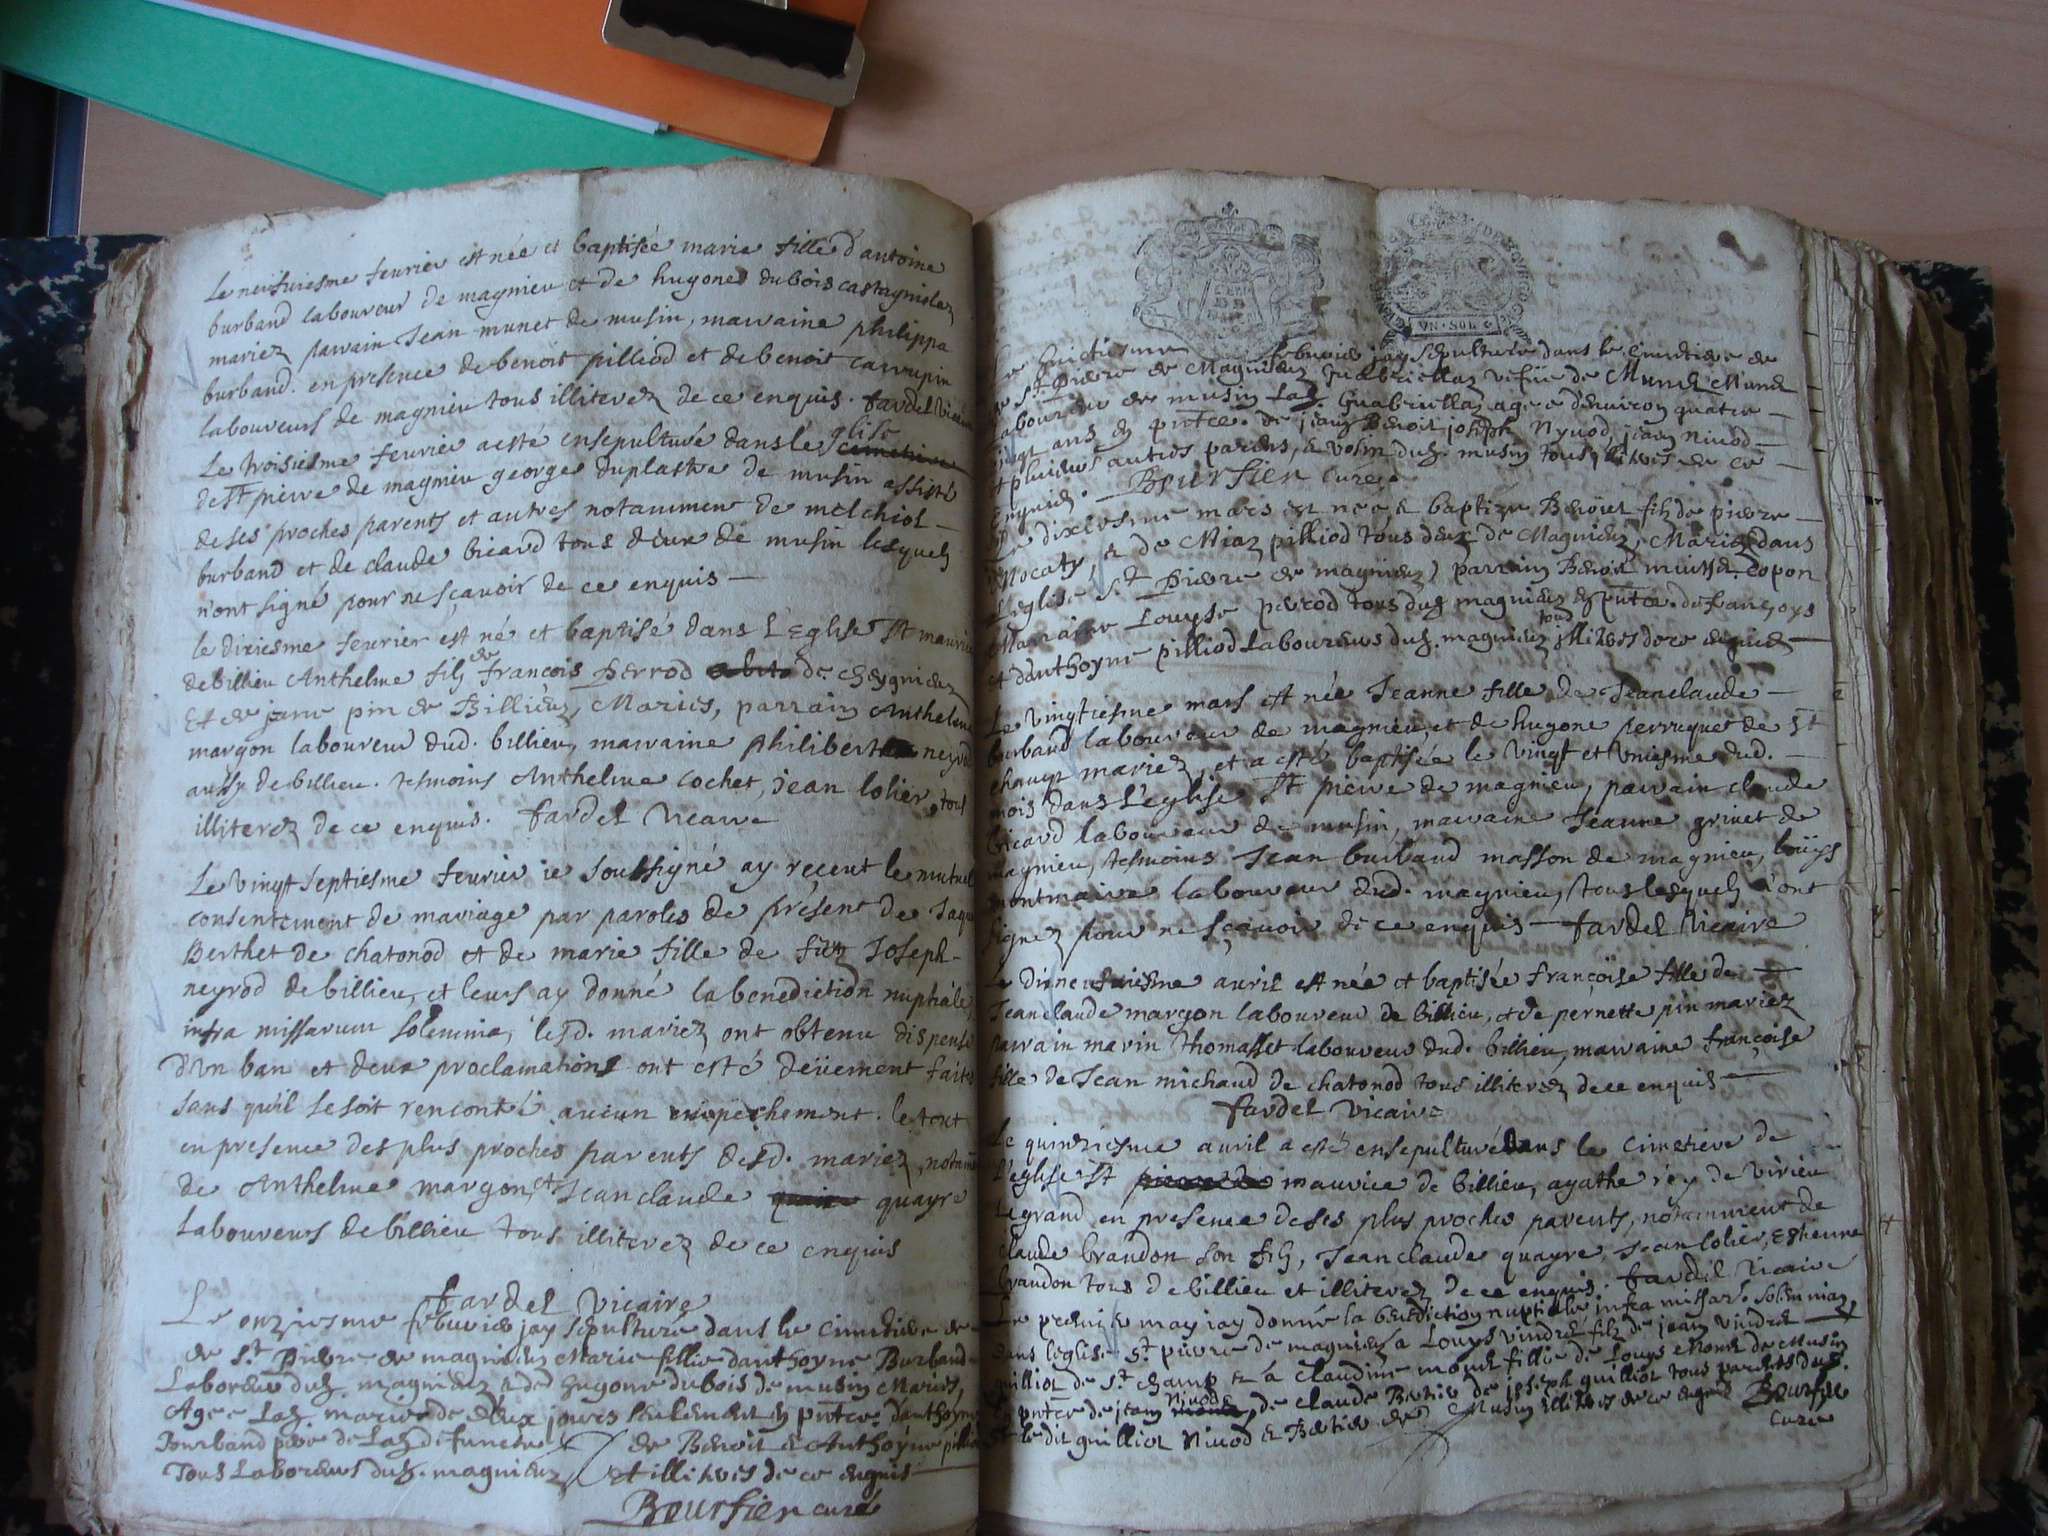 Le neufuiesme feurier est née et baptisée marie fille d'antoine
burband laboureur de magnieu et de hugone dubois castagniolez
mariez parrain Jean munet de musin, marraine philippa
burband. en presence de benoit pilliod et de benoit carrupin
laboureurs de magnieu tous illiterez de ce enquis. fardel vicaire
Le troisiesme feurier a esté ensepulturé dans léglise cimetiere
de St pierre de magnieu george duplastre de musin assisté
de ses proches parents et autres notamment de melchiol
burband et de claude bicard tous deux de musin lesquels
n'ont signé pour ne sçavoir de ce enquis
le dixiesme feurier est né et baptisé dans L'Eglise St maurice
de billieu Anthelme filz de françois Perrod de cheygnieu
Et de jane pin de Billieu, Mariés, parrain Anthelme
margon laboureur dud. billieu, marraine philiberte neyrod
aussy de billieu. tesmoins Anthelme Cochet, jean lolier, tous
illiterez de ce enquis. fardel vicaire
Le vingt septiesme feurier ie soussigné ay reçeut le mutuel
consentement de mariage par paroles de présent de Jaque
Berthet de chatonod et de marie fille de feu Joseph
neyrod de billieu, et leurs ay donné la benediction nuptiale,
infra missarum solemnia, lesd. mariez ont obtenu dispense
d'un ban et deux proclamations ont esté deüement faite
sans qu'il se soit rencontré aucun empechement. le tout
en presence des plus proches parents desd. mariez, notamt
de Anthelme margon, et Jeanclaude quayre
Laboureurs de billieu tous illiterez de ce enquis
fardel vicaire
Le onziesme febvrier jay sepulturé dans le cimetiere
de St. Pierre de magnieu Marie fillie danthoyne Burband
Laboreur dud. magnieu & de hugone dubois de musin Mariés,
Agee Lad. marie de deux jours seulement en pntce. danthoyne
Bourband pere de Lad. defuncte de Benoit & Anthoyne pilliod
Tous Laboreurs dud. magnieu et illitrés de ce enquis
Boursier curé
VN·SOL
Le huictiesme febvrier jay sepulturé dans le cimetiere de
de St. Pierre de Magnieu Guabriellaz vefue de Munet
Laboureur de musin Lad. Guabriellaz agee d'enuiron quatre
vingt ans en pntce. de jean Benoit joseph Nyuod, jean niuod
et plusieurs autres parens, & voisin dud. musin tous illitrés de ce
Enquis. Boursier curé
Le dixiesme mars est né & baptizé Benoiet filz de pierre
Mocaty, & de Miaz pilliod tous deux de Magnieu, Mariez dans
L'eglise St. Pierre de magnieu, parrain Benoit
Marraine Louyse perrod tous dud. magnieu en pntce. de françoys
et danthoyne pilliod Laboureurs dud. magnieu tous illitrés de ce enquis
Le vingtiesme mars est née Jeanne fille de Jeanclaude
burband laboureur de magnieu, et de hugone perruquet de St
champ mariez, et a esté baptisée le vingt et vniesme dud.
mois dans L'eglise St pierre de magnieu, parrain claude
bicard laboureur de musin, marraine Jeanne griuet de
magnieu, tesmoins Jean burband masson de magnieu, loüys
montmaire laboureur dud. magnieu, tous lesquels n'ont
signez pour ne sçavoir de ce enquis fardel vicaire
Le dixneufuiesme auril est née et baptisée françoise fille de
Jeanclaude margon laboureur de billieu, et de pernette pin mariez
parrain marin thomasset laboureur dud. billieu, marraine françoise
fille de Jean michaud de chatonod tous illiterez de ce enquis
fardel vicaire
Le quinziesme auril a esté ensepulturé dans le cimetiere de
l'eglise St maurice de billieu, agathe réy de virieu
Le grand en presence de ses plus proches parents, notamment de
Claude brandon son filz, Jeanclaude quayre, Jean lolier, Estienne
brandon tous de billieu et illiterez de ce enquis. fardel vicaire
Le premier may jay donné la benediction nuptiale infra missar. solemnia,
dans leglise St. pierre de magnieu a Louys vindret filz de jean vindret
quilliot de St. champ & a claudine monet fillie de Louys Monet de Musin
En pntce de jean niuod, de claude Bertier de joseph quilliot tous parens dud.
Et le dit quilliot Niuod & Bertier de Musin illitrés de ce enquis Boursier
curé